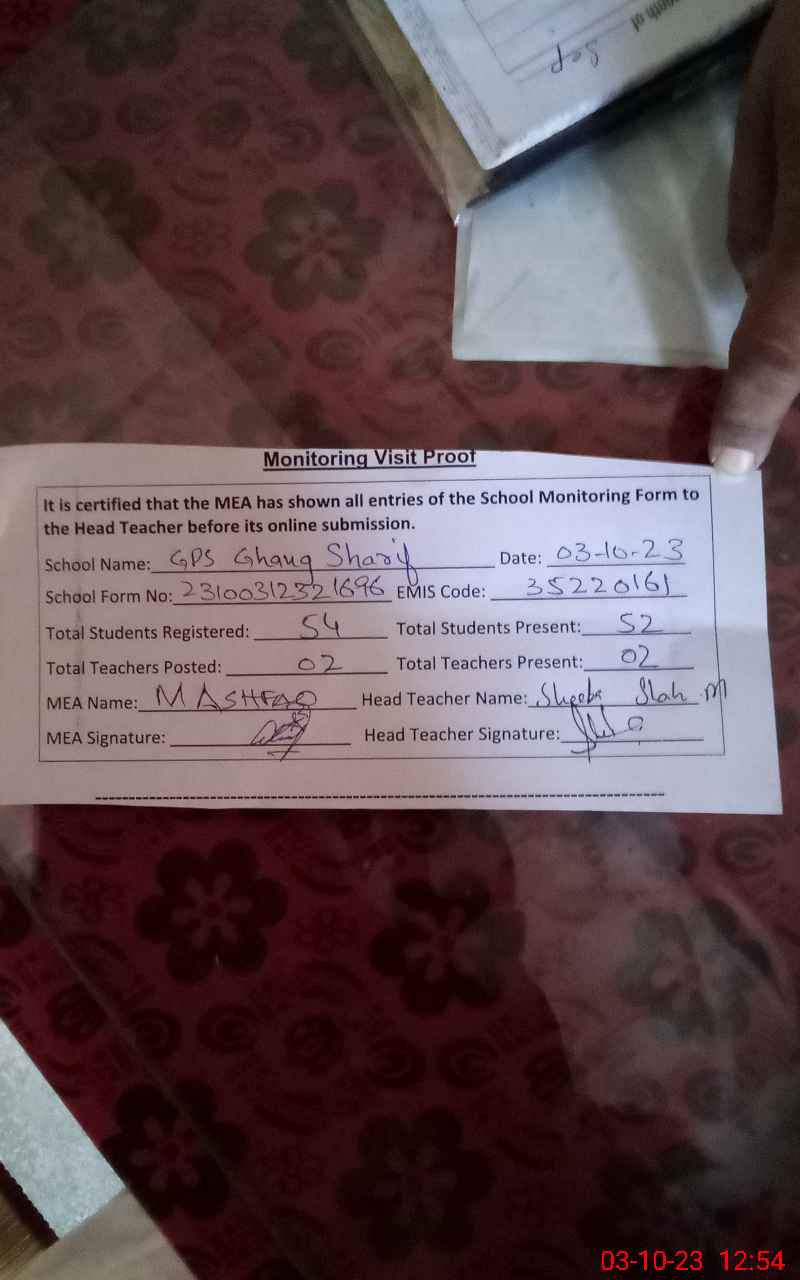 onth of
Sep
Monitoring Visit Proof
It is certified that the MEA has shown all entries of the School Monitoring Form to
the Head Teacher before its online submission.
School Name: GPS Ghang Sharif Date: 03-10-23
School Form No: EMIS Code: 35220161
Total Students Registered: 54 Total Students Present: 52
Total Teachers Posted: 02 Total Teachers Present: 02
MEA Name: M ASHFAQ Head Teacher Name:
MEA Signature: Head Teacher Signature:
03-10-23 12:54